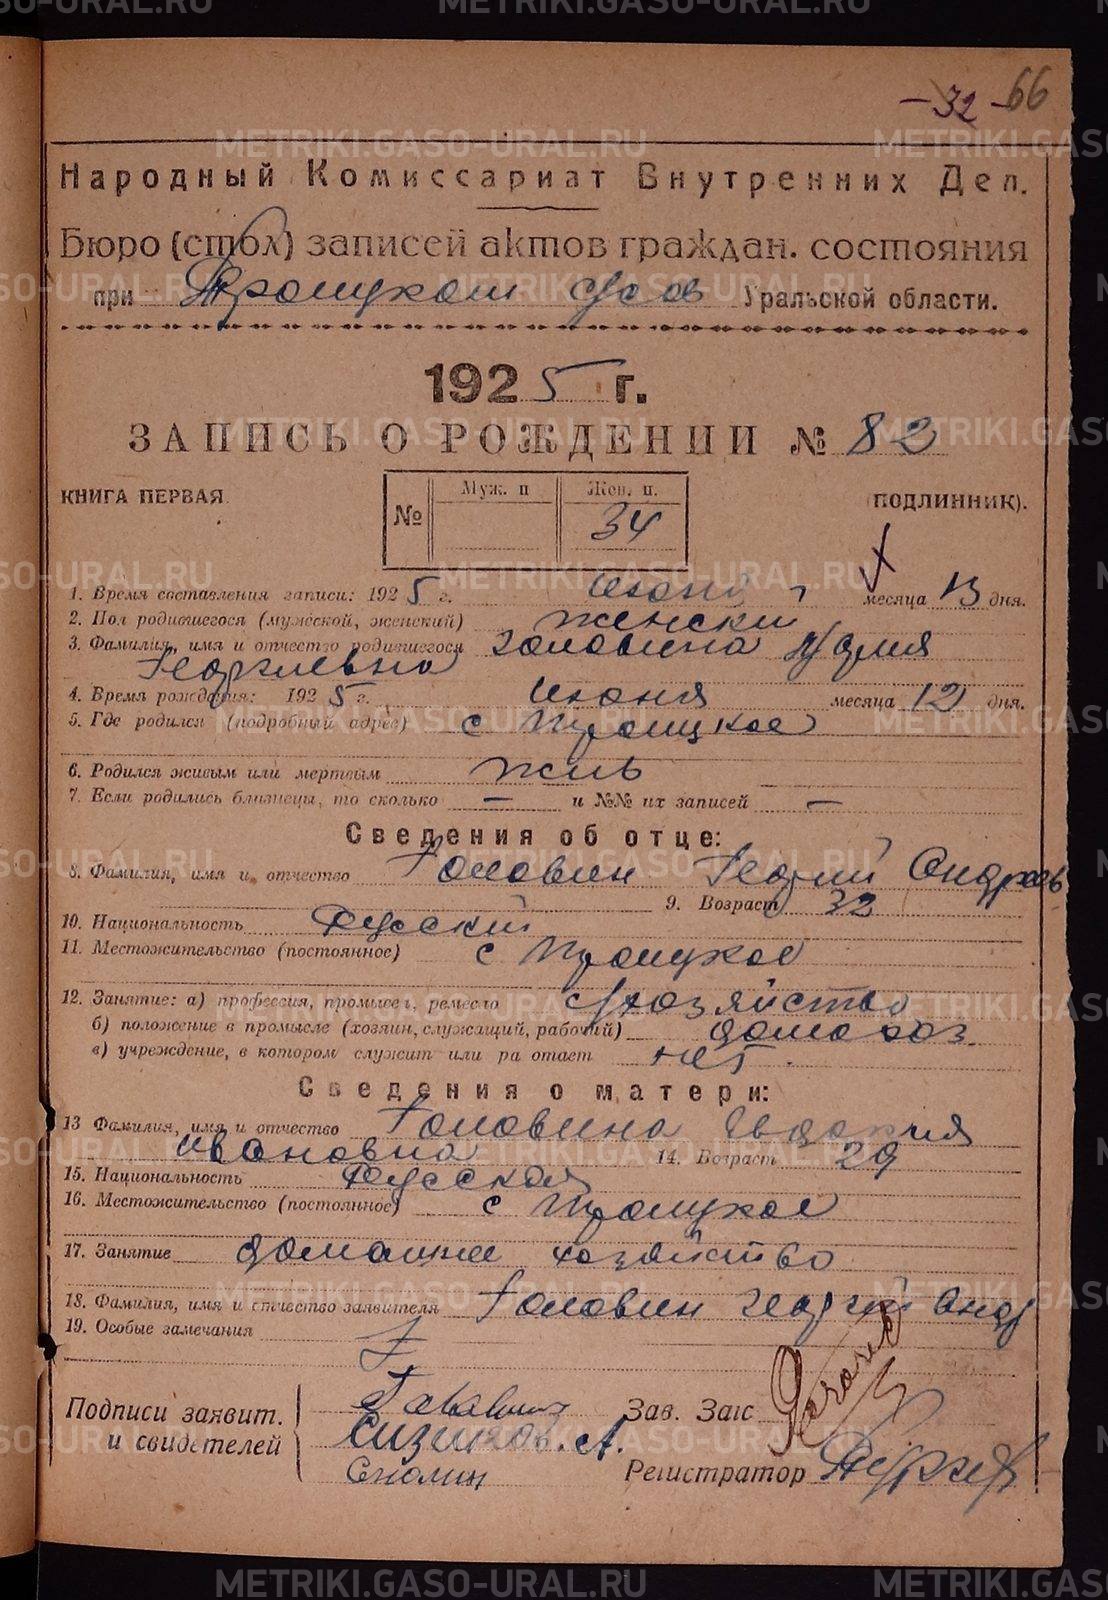 METRIKI.GASO-URAL.RU
– 32 – 66
Народный Комиссариат Внутренних Дел.
Бюро (стол) записей актов граждан. состояния
при Троицком с/сов Уральской области.
1925 г.
ЗАПИСЬ О РОЖДЕНИИ № 82
КНИГА ПЕРВАЯ (ПОДЛИННИК).
№ Муж. п Жен. п.
34
1. Время составления записи: 1925 г. Июня месяца 13 дня.
2. Пол родившегося (мужской, женский) женский
3. Фамилия, имя и отчество родившегося Головина
Георгиевна
4. Время рождения: 1925 г. Июня месяца 12 дня.
5. Где родился (подробный адрес) с Троицкое
6. Родился живым или мертвым жив
7. Если родились близнецы, то сколько — и №№ их записей —
Сведения об отце:
8. Фамилия, имя и отчество Головин Георгий Андреев
9. Возраст 32
10. Национальность Русский
11. Местожительство (постоянное) с Троицкое
12. Занятие: а) профессия, промысел, ремесло с/хозяйство
б) положение в промысле (хозяин, служащий, рабочий) домохоз.
в) учреждение, в котором служит или ра отает нет.
Сведения о матери:
13 Фамилия, имя и отчество Головина Евдокия
Ивановна 14. Возраст 29
15. Национальность Русская
16. Местожительство (постоянное) с Троицкое
17. Занятие домашнее хозяйство
18. Фамилия, имя и отчество заявителя Головин Георгий Андр
19. Особые замечания
Подписи заявит. Зав. Загс
и свидетелей Сизиков. А.
Регистратор